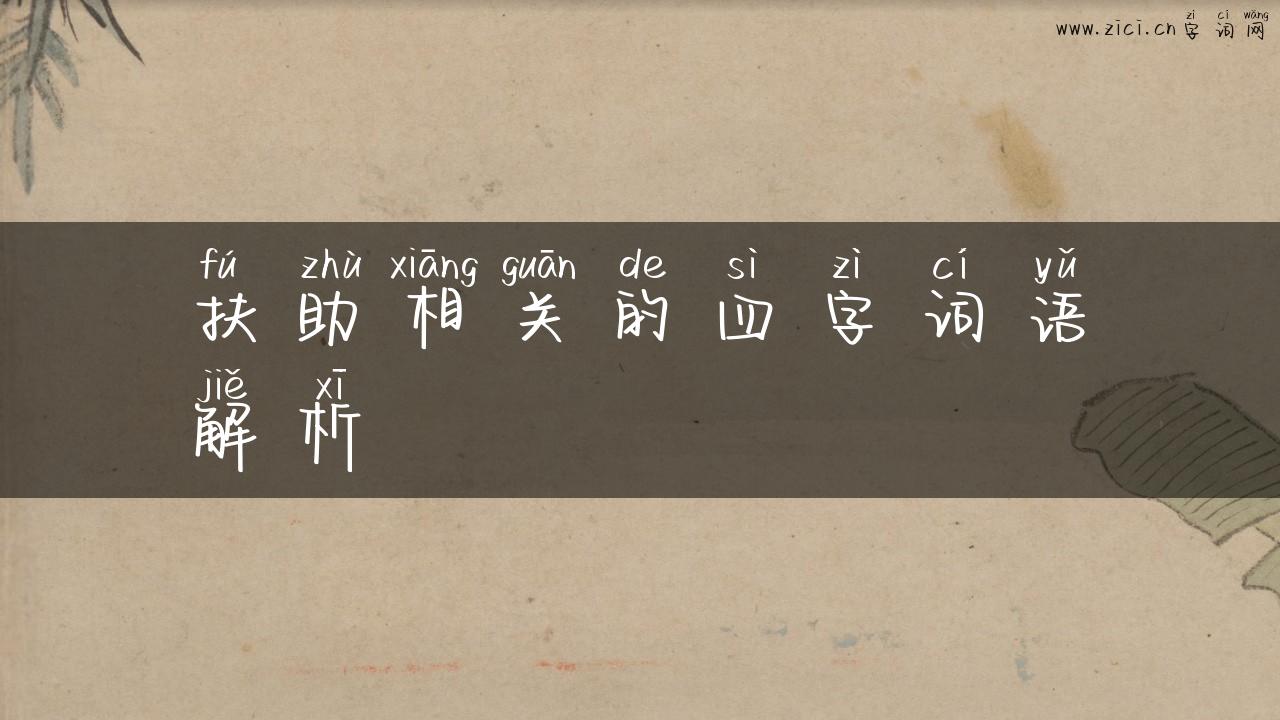 zì cí wǎng
www.zici.cn 字词网
fú zhù xiāng guān de sì zì cí yǔ
扶助相关的四字词语
jiě xī
解析